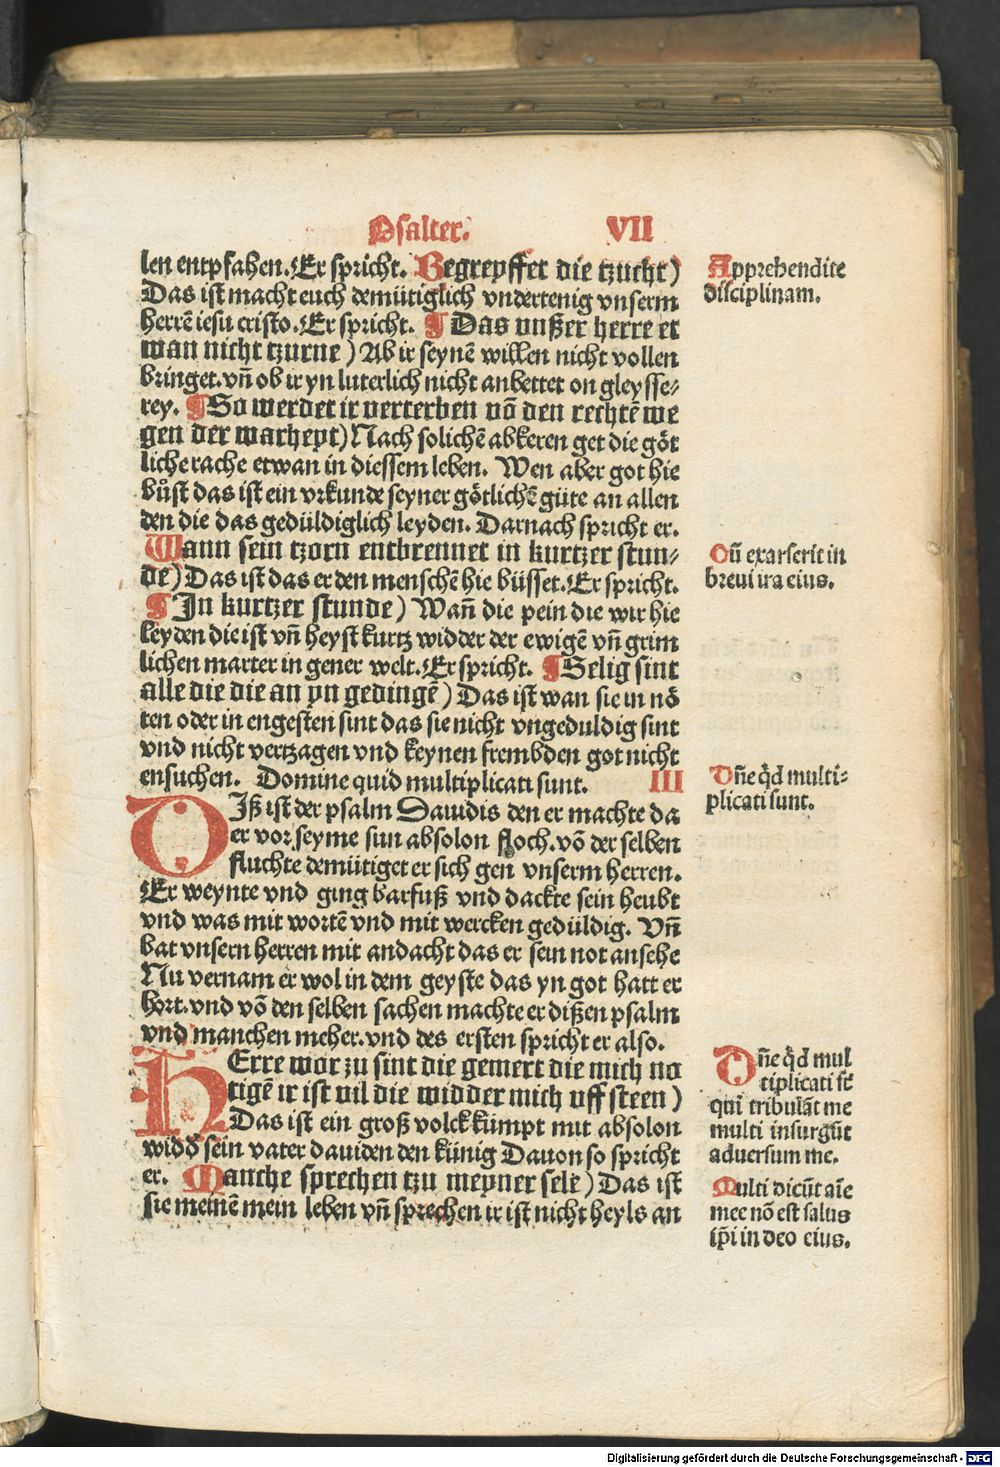 Psalter. VII
len entpfahen. Er spricht. Begreyffet die tzucht)
Das ist macht euch demütiglich vndertenig vnserm
herrē iesu cristo. Er spricht. ¶ Das vnßer herre et
wan nicht tzurne) Ab ir seynē willen nicht vollen
bringet. vn̄ ob ir yn luterlich nicht anbettet on gleysse⸗
rey. ¶ So werdet ir verterben vō den rechtē we
gen der warheyt) Nach solichē abkeren get die göt
liche rache etwan in diessem leben. Wen aber got hie
bůst das ist ein vrkunde seyner götlichē güte an allen
den die das gedüldiglich leyden. Darnach spricht er.
Wann sein tzorn entbrennet in kurtzer stun⸗
de) Das ist das er den menschē hie büsset. Er spricht.
¶ In kurtzer stunde) Wan̄ die pein die wir hie
leyden die ist vn̄ heyst kurtz widder der ewigē vn̄ grim
lichen marter in gener welt. Er spricht. ¶ Selig sint
alle die die an yn gedingē) Das ist wan sie in nö
ten oder in engesten sint das sie nicht vngeduldig sint
vnd nicht vertzagen vnd keynen frembden got nicht
ensuchen. Domine quid multiplicati sunt. III
DIß ist der psalm Dauidis den er machte da
er vor seyme sun absolon floch. vō der selben
fluchte demütiget er sich gen vnserm herren.
Er weynte vnd ging barfuß vnd dackte sein heubt
vnd was mit wortē vnd mit wercken gedüldig. Vn̄
bat vnsern herren mit andacht das er sein not ansehe
Nu vernam er wol in dem geyste das yn got hatt er
hort. vnd vō den selben sachen machte er dißen psalm
vnd manchen meher. vnd des ersten spricht er also.
HErre wor zu sint die gemert die mich no
tigē ir ist vil die widder mich uff steen)
Das ist ein groß volck kümpt mit absolon
widd̕ sein vater dauiden den künig Dauon so spricht
er. Manche sprechen tzu meyner sele) Das ist
sie meinē mein leben vn̄ sprechen ir ist nicht heyls an
Apprehendite
disciplinam.
Cū exarserit in
breui ira eius.
Dn̄e qd̕ multi⸗
plicati sunt.
Dn̄e qd̕ mul
tiplicati st̄
qui tribulāt me
multi insurgūt
aduersum me.
Multi dicūt aīe
mee nō est salus
ip̄i in deo eius.
Digitalisierung gefördert durch die Deutsche Forschungsgemeinschaft - DFG